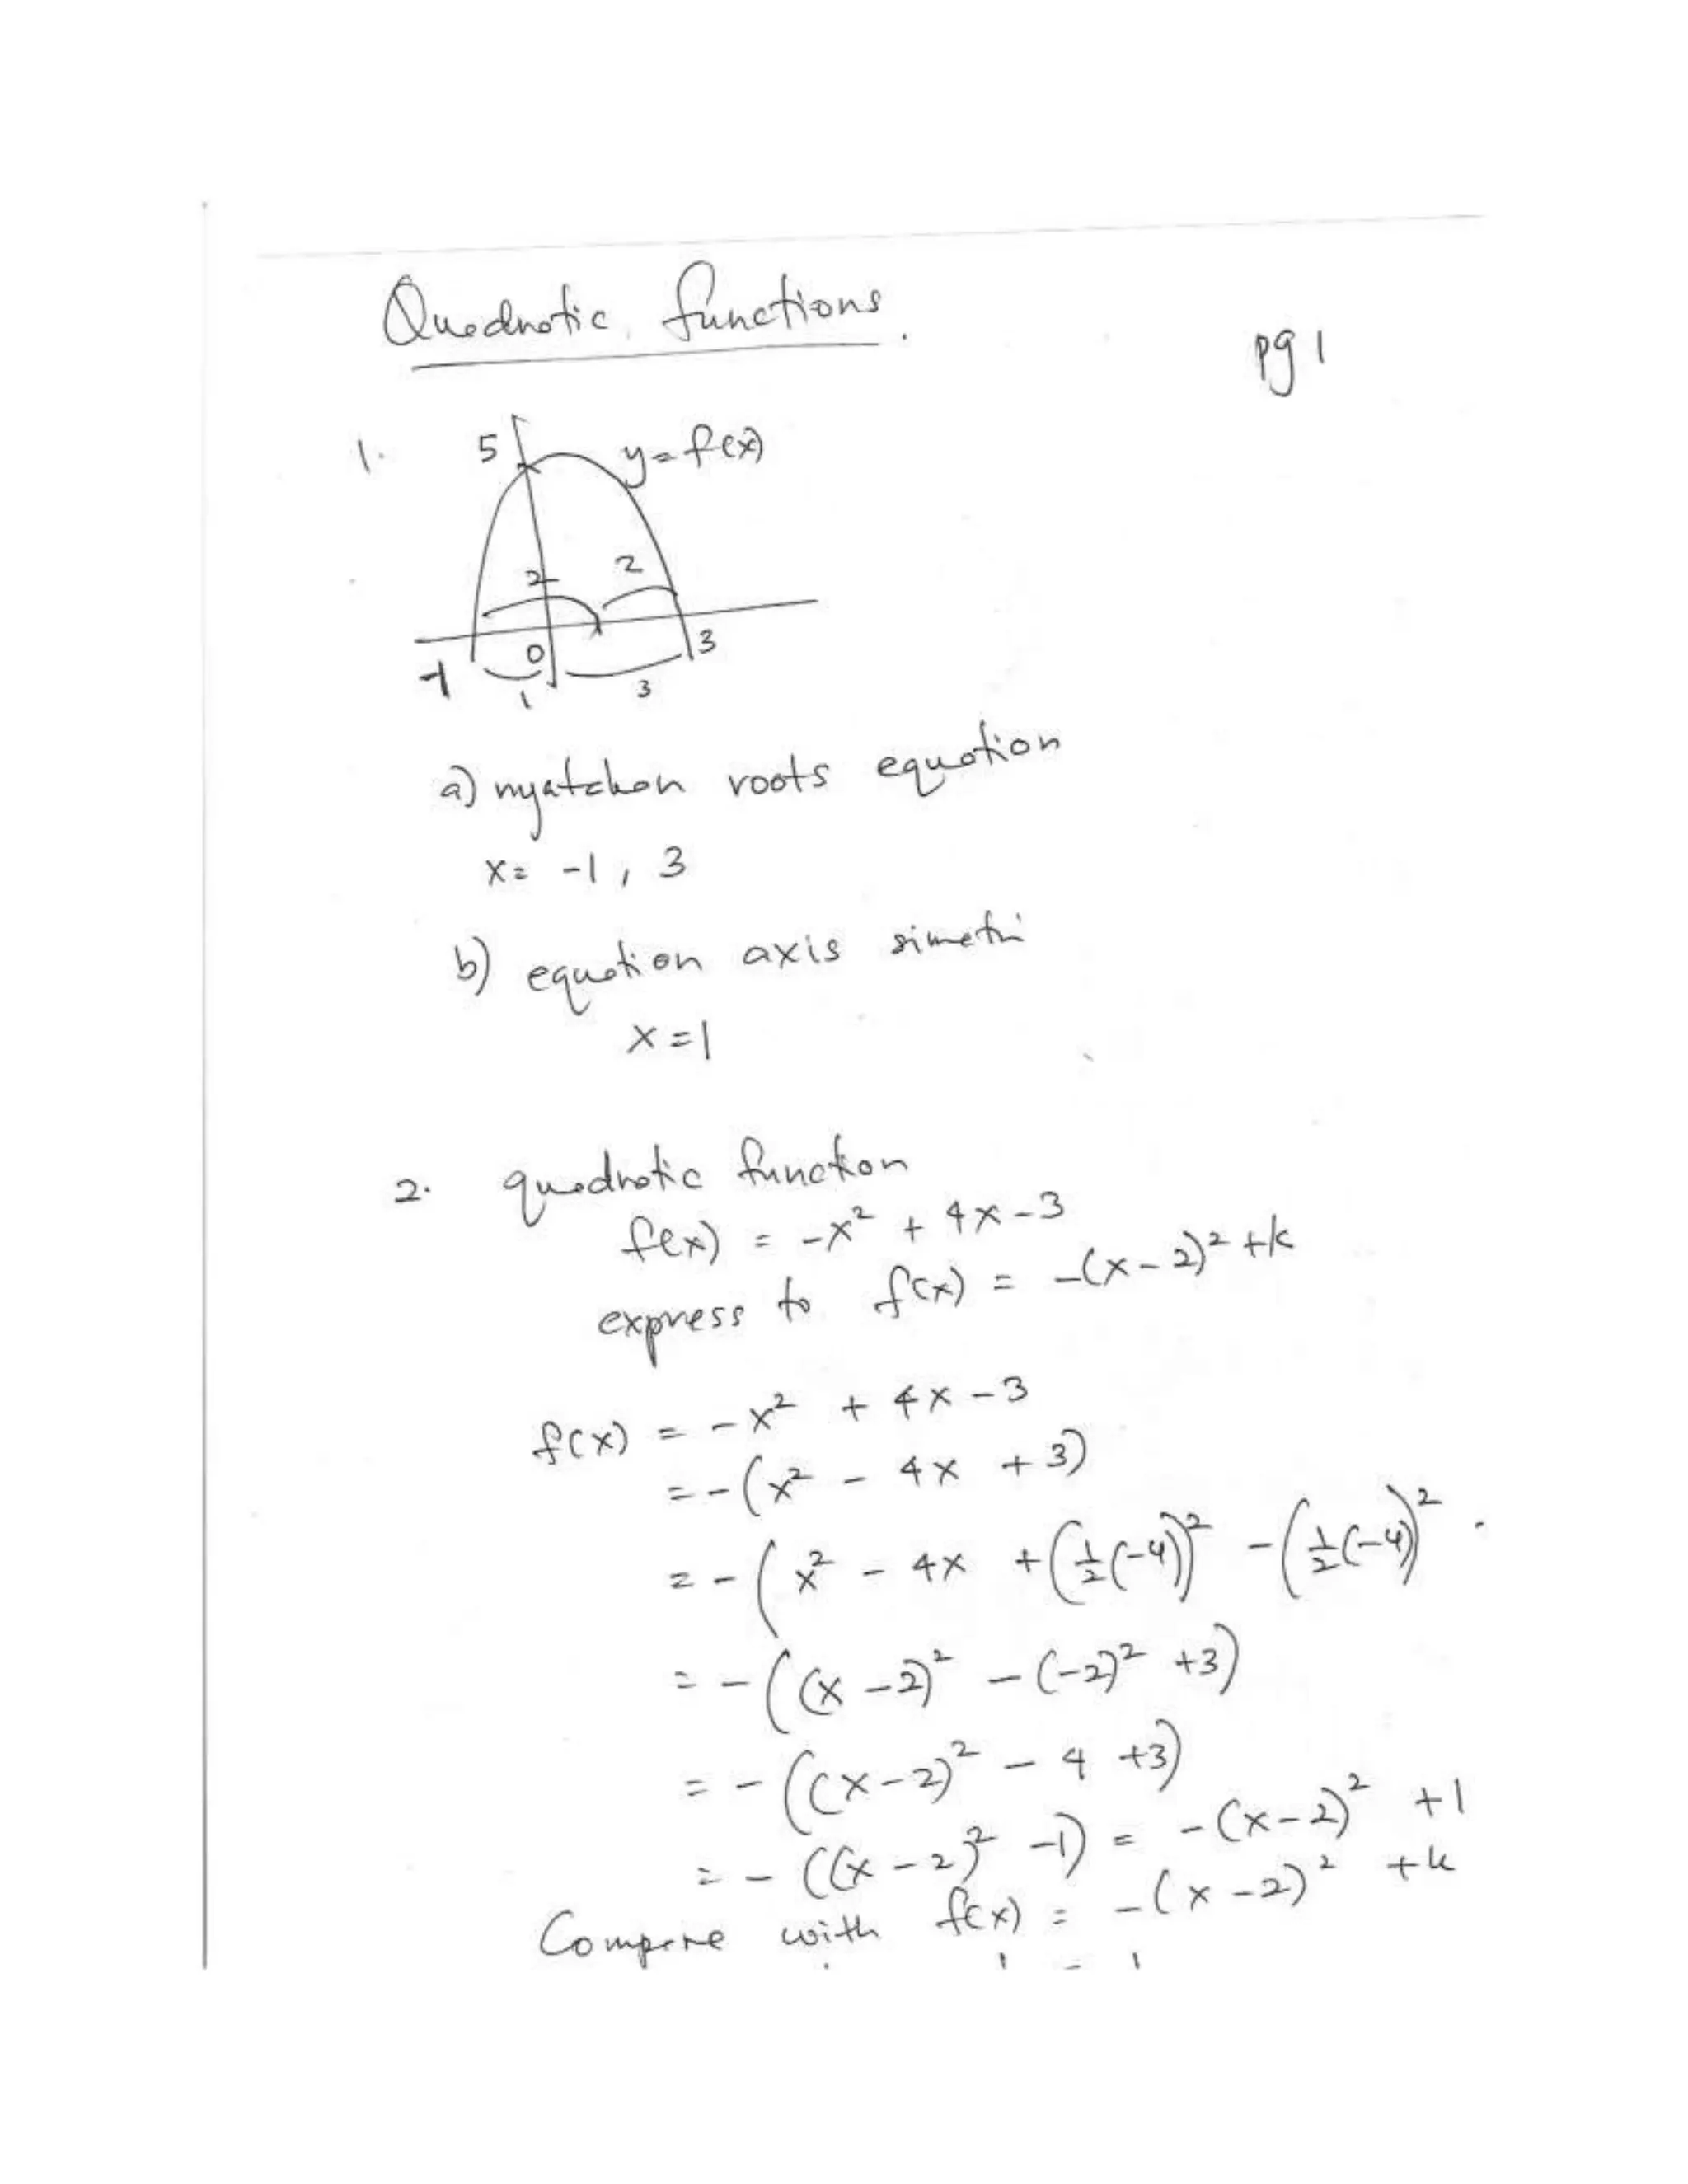 Quadratic functions.
pg 1
1.
5
y=f(x)
2 2
-1 0 3
1 3
a) nyatakan roots equation
x= -1, 3
b) equation axis simetri
x=1
2. quadratic function
f(x) = -x² + 4x-3
express to f(x) = -(x-2)² +k
f(x) = -x² + 4x-3
= -(x² - 4x +3)
= -(x² - 4x +(½(-4))² -(½(-4))²
= -((x-2)² -(-2)² +3)
= -((x-2)² - 4 +3)
= -((x-2)² -1) = -(x-2)² +1
Compare with f(x) = -(x-2)² +k